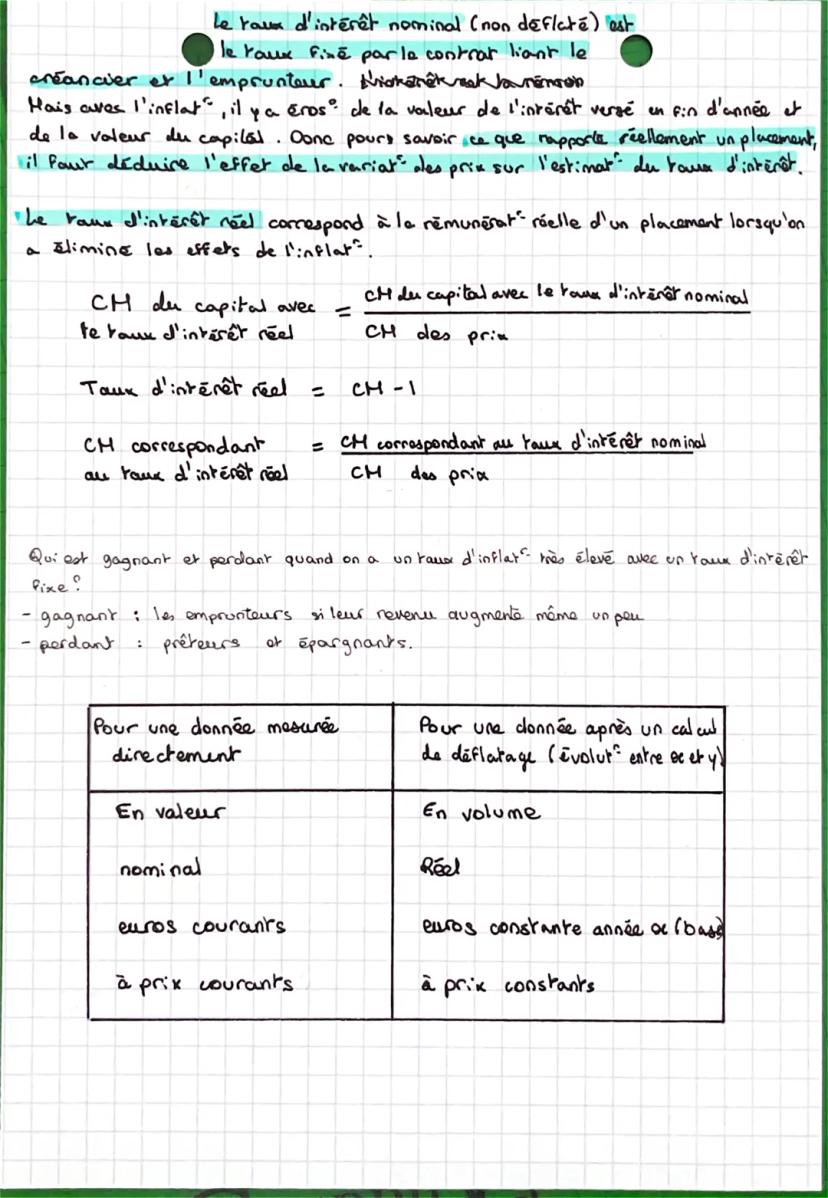 Le taux d'intérêt nominal (non déflaté) est
le taux fixé par le contrat liant le
créancier et l'emprunteur.
Mais avec l'inflat°, il y a éros° de la valeur de l'intérêt versé en fin d'année et
de la valeur du capital. Donc pour savoir ce que rapporte réellement un placement,
il faut déduire l'effet de la variat° des prix sur l'estimat° du taux d'intérêt.
Le taux d'intérêt réel correspond à la rémunérat° réelle d'un placement lorsqu'on
a éliminé les effets de l'inflat°.
CM du capital avec le taux d'intérêt réel = CM du capital avec le taux d'intérêt nominal
CM des prix
Taux d'intérêt réel = CM - 1
CM correspondant au taux d'intérêt réel = CM correspondant au taux d'intérêt nominal
CM des prix
Qui est gagnant et perdant quand on a un taux d'inflat° très élevé avec un taux d'intérêt
fixe ?
- gagnant : les emprunteurs si leur revenu augmente même un peu
- perdant : prêteurs et épargnants.
Pour une donnée mesurée
directement
Pour une donnée après un calcul
de déflatage (évolut° entre x et y)
En valeur
En volume
nominal
Réel
euros courants
euros constante année x (base)
à prix courants
à prix constants